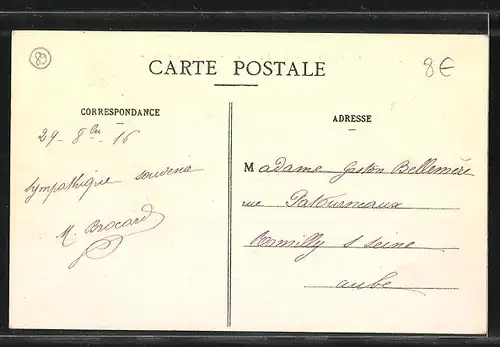 89
8€
CARTE POSTALE
CORRESPONDANCE
ADRESSE
29 - 8bre 16
Sympathique souvenir
M. Brocard
Madame Gaston Bellemère
rue Patourneaux
Romilly s seine
aube